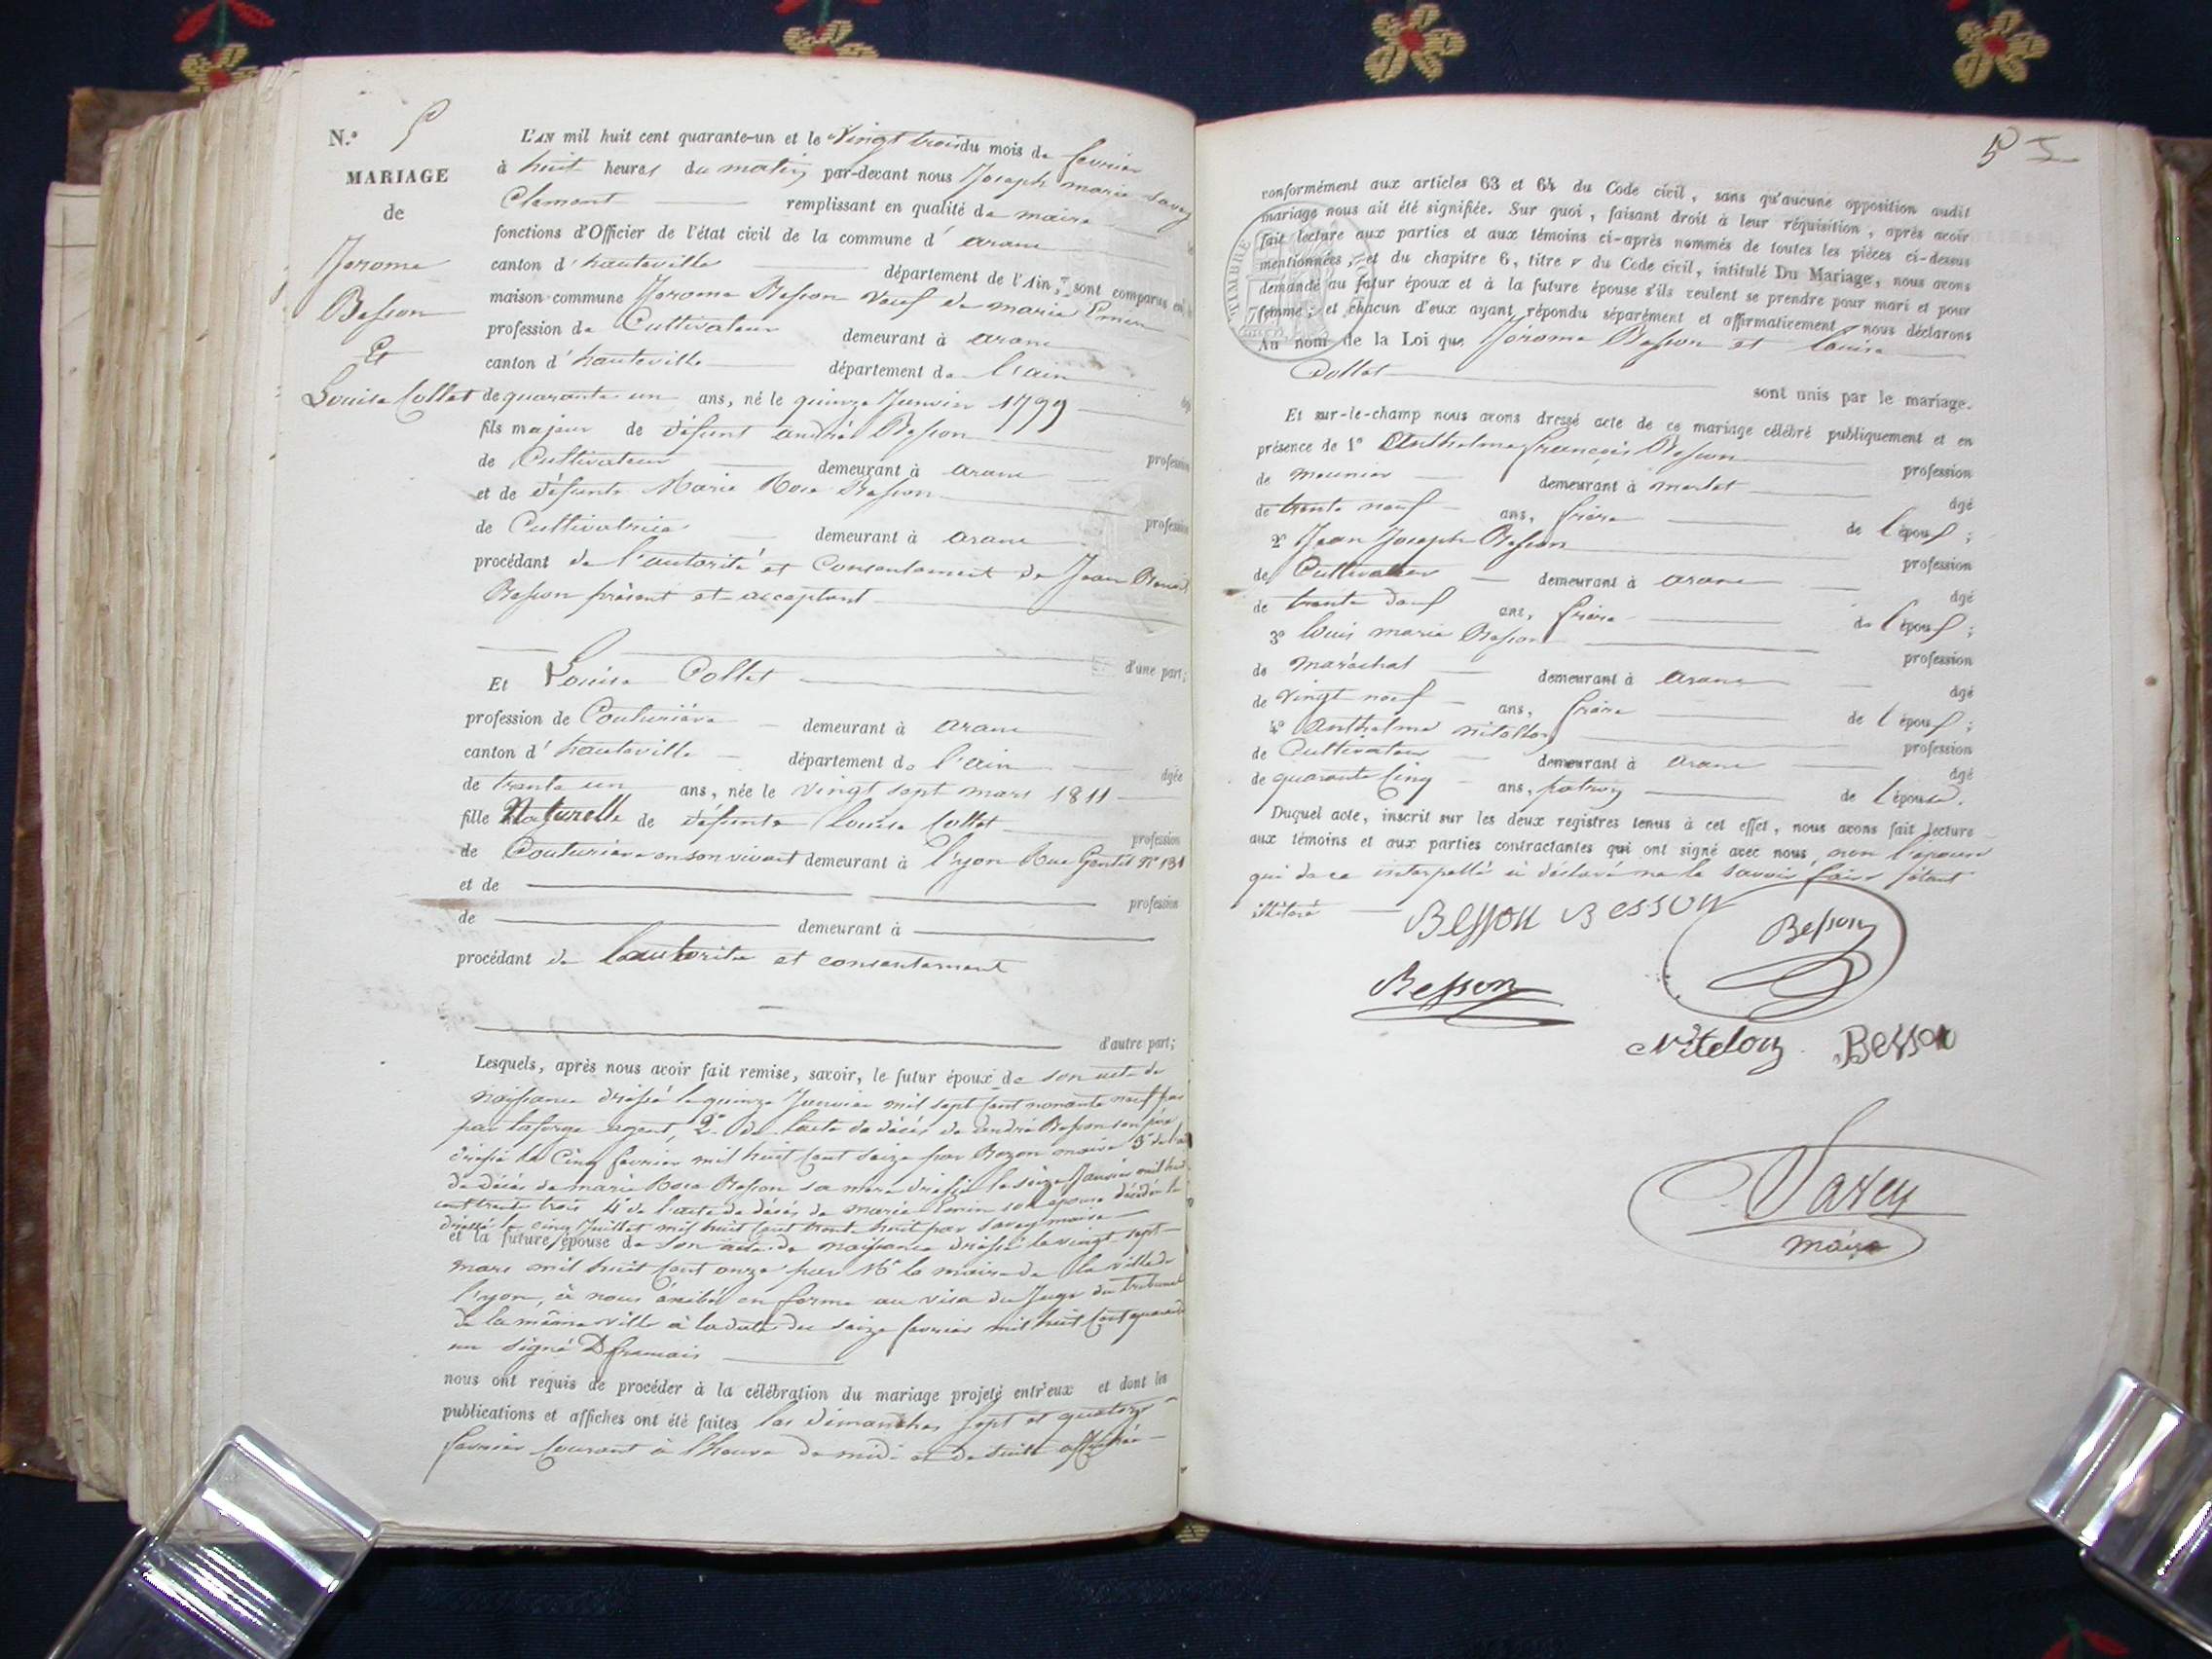 N.o 5
MARIAGE
de
Jerome
Besson
Et
Louise Collet
L'AN mil huit cent quarante-un et le Vingt trois du mois de fevrier
à huit heures du matin par-devant nous Joseph marie Savey
Clement remplissant en qualité de maire
fonctions d'Officier de l'état civil de la commune d' arane
canton d' hauteville département de l'Ain, sont comparus en
maison commune Jerome Besson Veuf de marie Emin
profession de Cultivateur demeurant à arane
canton d' hauteville département de l'ain
de quarante un ans, né le quinze Janvier 1799
fils majeur de défunt andré Besson
profession
de Cultivateur demeurant à arane
et de défunte Marie Rose Besson
profession
de Cultivatrice demeurant à arane
procédant de l'autorité et Consentement de Jean
Besson présent et acceptant
d'une part;
Et Louise Collet
profession de Couturière demeurant à arane
canton d' hauteville département de l'ain
âgée
de trente un ans, née le vingt sept mars 1811
fille Naturelle de défunte Louise Collet
profession
de Couturière en son vivant demeurant à l'yon Rue Gentil N° 131
et de
profession
de demeurant à
procédant de l'autorité et consentement
d'autre part;
Lesquels, après nous avoir fait remise, savoir, le futur époux de son acte de
naissance dressé le quinze Janvier mil sept cent nonante neuf
par laforge agent, 2° de l'acte de décés de andré Besson son père
dressé le Cinq fevrier mil huit cent seize par Bozon maire 3° de
de décés de marie Rose Besson sa mere dressé le seize Janvier mil huit
cent trente trois 4° de l'acte de décés de marie Emin son épouse décédée
dressé le cinq Juillet mil huit cent trente huit par savey maire
et la future épouse de son acte de naissance dressé le vingt sept
mars mil huit cent onze par Mr le maire de la ville de
l'yon, à nous exibé en forme au visa du Juge du tribunal
de la même ville à la date du seize fevrier mil huit cent quarante
un signé
nous ont requis de procéder à la célébration du mariage projeté entr'eux et dont les
publications et affiches ont été faites les dimanches sept et quatorze
fevrier Courant à l'heure de midi et de suite affichée
5
conformément aux articles 63 et 64 du Code civil, sans qu'aucune opposition audit
mariage nous ait été signifiée. Sur quoi, faisant droit à leur réquisition, après avoir
fait lecture aux parties et aux témoins ci-après nommés de toutes les pièces ci-dessus
mentionnées, et du chapitre 6, titre v du Code civil, intitulé Du Mariage, nous avons
demandé au futur époux et à la future épouse s'ils veulent se prendre pour mari et pour
femme; et chacun d'eux ayant répondu séparément et affirmativement, nous déclarons
Au nom de la Loi que Jérome Besson et Louise
Collet
sont unis par le mariage.
TIMBRE
Et sur-le-champ nous avons dressé acte de ce mariage célébré publiquement et en
présence de 1° Anthelme françois Besson
profession
de meunier demeurant à
âgé
de trente neuf ans, frère de l'époux;
2° Jean Joseph Besson
profession
de Cultivateur demeurant à arane
âgé
de trente ans, frère de l'époux;
3° Louis marie Besson
profession
de maréchal demeurant à arane
âgé
de vingt neuf ans, frère de l'époux;
4° Anthelme
profession
de Cultivateur demeurant à arane
âgé
de quarante Cinq ans, patron de l'épouse.
Duquel acte, inscrit sur les deux registres tenus à cet effet, nous avons fait lecture
aux témoins et aux parties contractantes qui ont signé avec nous, non l'épouse
qui de ce interpellé à déclaré ne le savoir faire
illitéré
Besson Besson Besson
Besson
Nitelon Besson
Savey
maire